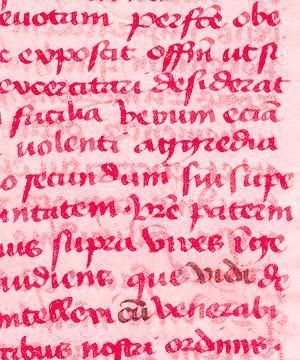 euotam perfcē obe
c exposcit offm ut si
exercitari desiderat
facilia uerum eciā
uolenti aggredia
o secundum sui supe
untatem vrē patern
uus supra vires ige
audiens que vidi de
intellexi cū venerabi
tibus nostri ordinis.